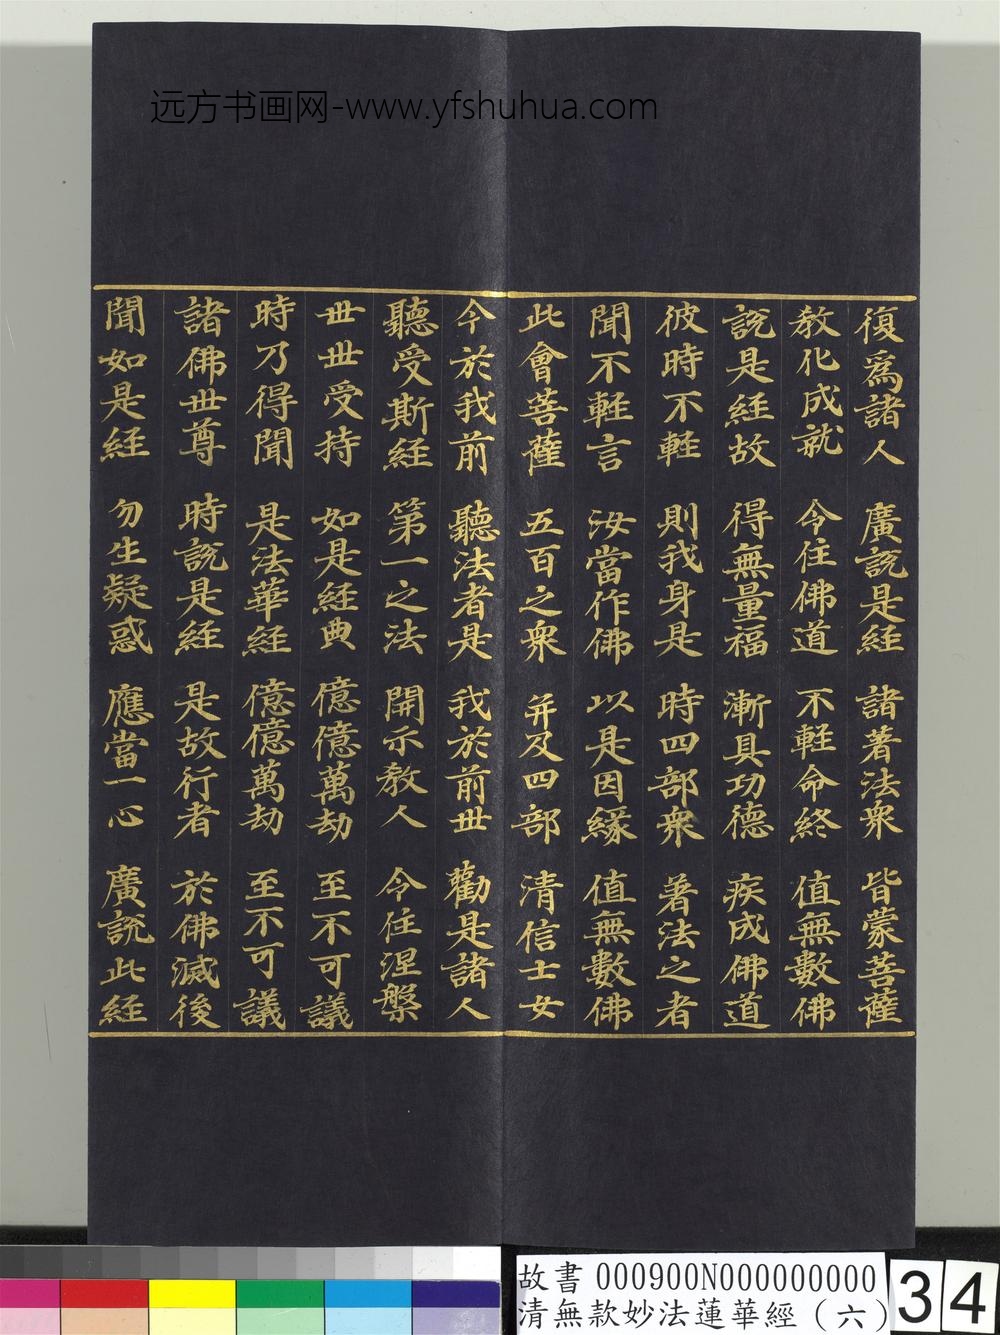 远方书画网-www.yfshuhua.com
復爲諸人 廣說是経 諸著法衆 皆蒙菩薩
教化成就 令住佛道 不軽命終 值無數佛
說是経故 得無量福 漸具功德 疾成佛道
彼時不軽 則我身是 時四部衆 著法之者
聞不軽言 汝當作佛 以是因緣 值無數佛
此會菩薩 五百之衆 并及四部 清信士女
今於我前 聽法者是 我於前丗 勸是諸人
聽受斯経 第一之法 開示教人 令住涅槃
丗丗受持 如是経典 億億萬劫 至不可議
時乃得聞 是法華経 億億萬劫 至不可議
諸佛丗尊 時說是経 是故行者 於佛滅後
聞如是経 勿生疑惑 應當一心 廣說此経
故書 000900N000000000
清無款妙法蓮華經（六）
34